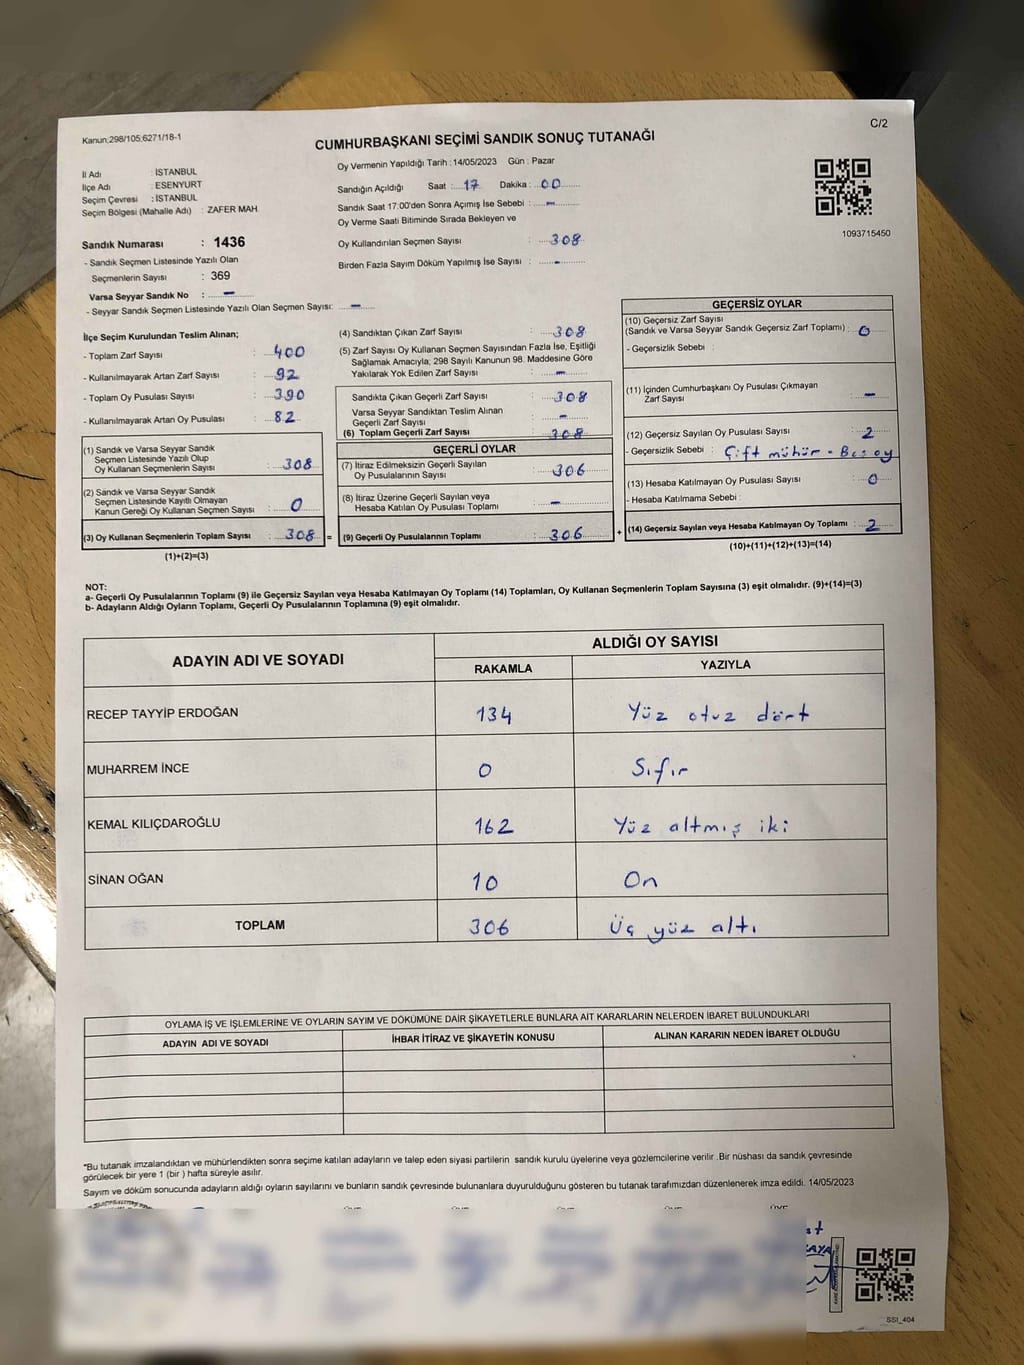 Kanun:298/105;6271/18-1
C/2
CUMHURBAŞKANI SEÇİMİ SANDIK SONUÇ TUTANAĞI
İl Adı : İSTANBUL
İlçe Adı : ESENYURT
Seçim Çevresi : İSTANBUL
Seçim Bölgesi (Mahalle Adı) : ZAFER MAH.
Oy Vermenin Yapıldığı Tarih : 14/05/2023 Gün : Pazar
Sandığın Açıldığı Saat : 17 Dakika : 00
Sandık Saat 17:00'den Sonra Açımış İse Sebebi : -
Oy Verme Saati Bitiminde Sırada Bekleyen ve
Oy Kullandırılan Seçmen Sayısı : 308
Birden Fazla Sayım Döküm Yapılmış İse Sayısı : -
1093715450
Sandık Numarası : 1436
- Sandık Seçmen Listesinde Yazılı Olan
Seçmenlerin Sayısı : 369
Varsa Seyyar Sandık No : -
- Seyyar Sandık Seçmen Listesinde Yazılı Olan Seçmen Sayısı: -
İlçe Seçim Kurulundan Teslim Alınan;
- Toplam Zarf Sayısı : 400
- Kullanılmayarak Artan Zarf Sayısı : 92
- Toplam Oy Pusulası Sayısı : 390
- Kullanılmayarak Artan Oy Pusulası : 82
(1) Sandık ve Varsa Seyyar Sandık
Seçmen Listesinde Yazılı Olup
Oy Kullanan Seçmenlerin Sayısı : 308
(2) Sandık ve Varsa Seyyar Sandık
Seçmen Listesinde Kayıtlı Olmayan
Kanun Gereği Oy Kullanan Seçmen Sayısı : 0
(3) Oy Kullanan Seçmenlerin Toplam Sayısı : 308 =
(1)+(2)=(3)
(4) Sandıktan Çıkan Zarf Sayısı : 308
(5) Zarf Sayısı Oy Kullanan Seçmen Sayısından Fazla İse, Eşitliği
Sağlamak Amacıyla; 298 Sayılı Kanunun 98. Maddesine Göre
Yakılarak Yok Edilen Zarf Sayısı : -
Sandıkta Çıkan Geçerli Zarf Sayısı : 308
Varsa Seyyar Sandıktan Teslim Alınan
Geçerli Zarf Sayısı : -
(6) Toplam Geçerli Zarf Sayısı : 308
GEÇERLİ OYLAR
(7) İtiraz Edilmeksizin Geçerli Sayılan
Oy Pusulalarının Sayısı : 306
(8) İtiraz Üzerine Geçerli Sayılan veya
Hesaba Katılan Oy Pusulası Toplamı : -
(9) Geçerli Oy Pusulalarının Toplamı : 306 +
GEÇERSİZ OYLAR
(10) Geçersiz Zarf Sayısı
(Sandık ve Varsa Seyyar Sandık Geçersiz Zarf Toplamı) : 0
- Geçersizlik Sebebi :
(11) İçinden Cumhurbaşkanı Oy Pusulası Çıkmayan
Zarf Sayısı : -
(12) Geçersiz Sayılan Oy Pusulası Sayısı : 2
- Geçersizlik Sebebi : Çift mühür - Boş oy
(13) Hesaba Katılmayan Oy Pusulası Sayısı : 0
- Hesaba Katılmama Sebebi :
(14) Geçersiz Sayılan veya Hesaba Katılmayan Oy Toplamı : 2
(10)+(11)+(12)+(13)=(14)
NOT:
a- Geçerli Oy Pusulalarının Toplamı (9) ile Geçersiz Sayılan veya Hesaba Katılmayan Oy Toplamı (14) Toplamları, Oy Kullanan Seçmenlerin Toplam Sayısına (3) eşit olmalıdır. (9)+(14)=(3)
b- Adayların Aldığı Oyların Toplamı, Geçerli Oy Pusulalarının Toplamına (9) eşit olmalıdır.
ADAYIN ADI VE SOYADI
ALDIĞI OY SAYISI
RAKAMLA YAZIYLA
RECEP TAYYİP ERDOĞAN 134 Yüz otuz dört
MUHARREM İNCE 0 Sıfır
KEMAL KILIÇDAROĞLU 162 Yüz altmış iki
SİNAN OĞAN 10 On
TOPLAM 306 Üç yüz altı
OYLAMA İŞ VE İŞLEMLERİNE VE OYLARIN SAYIM VE DÖKÜMÜNE DAİR ŞİKAYETLERLE BUNLARA AİT KARARLARIN NELERDEN İBARET BULUNDUKLARI
ADAYIN ADI VE SOYADI İHBAR İTİRAZ VE ŞİKAYETİN KONUSU ALINAN KARARIN NEDEN İBARET OLDUĞU
*Bu tutanak imzalandıktan ve mühürlendikten sonra seçime katılan adayların ve talep eden siyasi partilerin sandık kurulu üyelerine veya gözlemcilerine verilir .Bir nüshası da sandık çevresinde
görülecek bir yere 1 (bir ) hafta süreyle asılır.
Sayım ve döküm sonucunda adayların aldığı oyların sayılarını ve bunların sandık çevresinde bulunanlara duyurulduğunu gösteren bu tutanak tarafımızdan düzenlenerek imza edildi. 14/05/2023
SSI_404